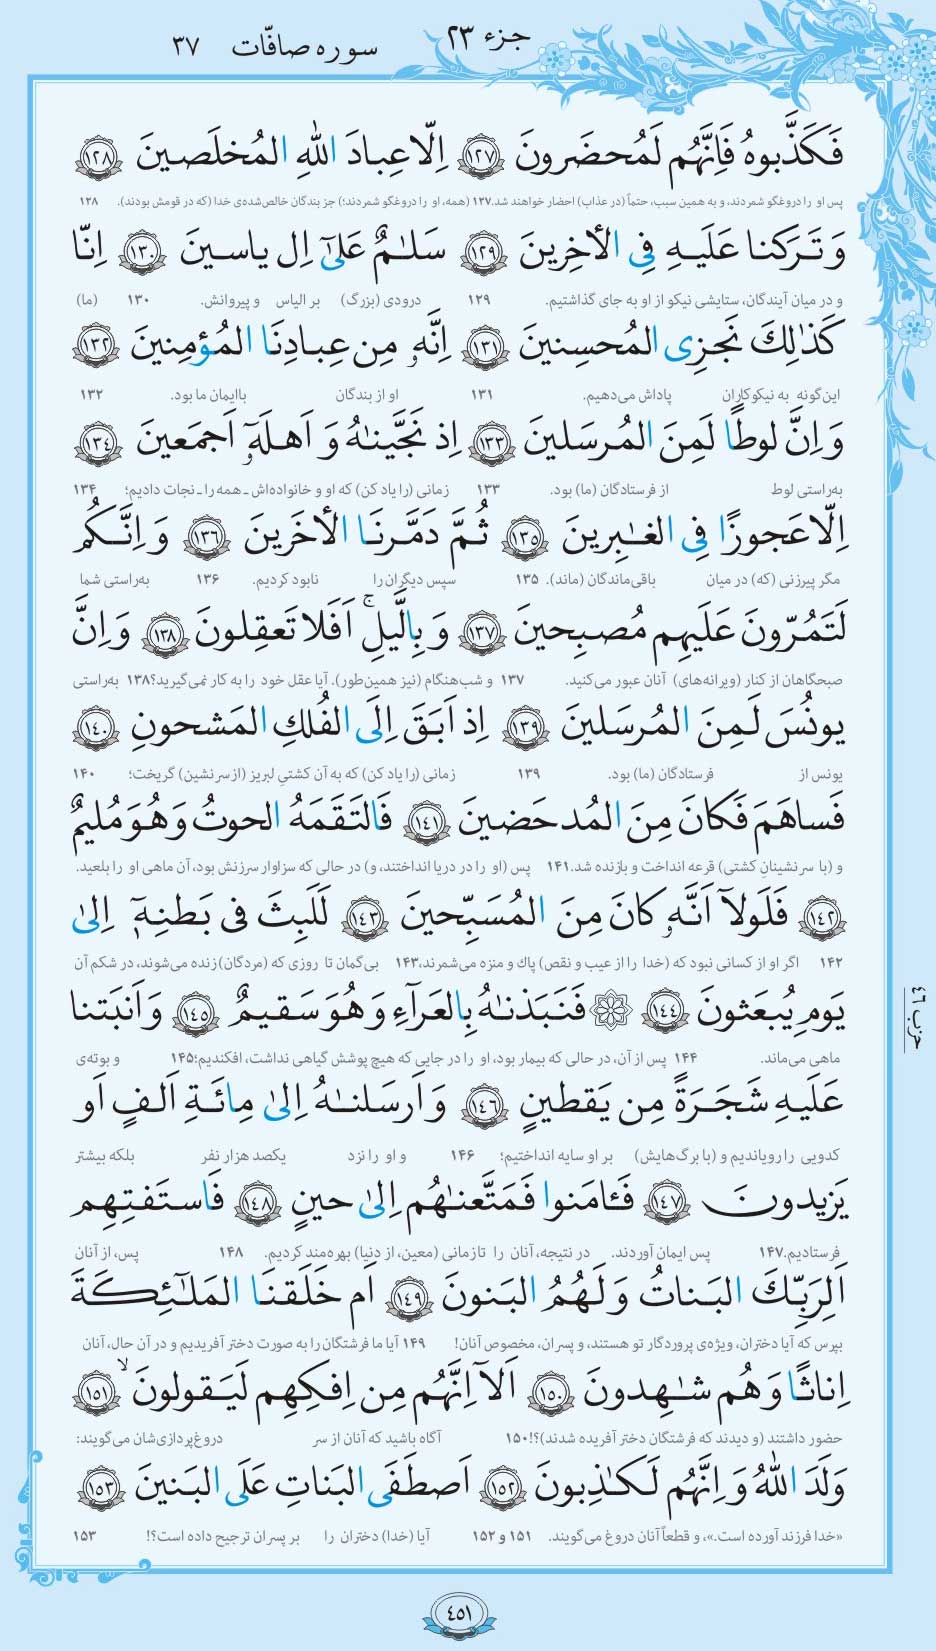 جزء ۲۳
سوره صافّات ۳۷
فَكَذَّبوهُ فَاِنَّهُم لَمُحضَرونَ ﴿١٢٧﴾ اِلّا عِبادَ اللّٰهِ المُخلَصينَ ﴿١٢٨﴾
پس او را دروغگو شمردند، و به همین سبب، حتماً (در عذاب) احضار خواهند شد.۱۲۷ (همه، او را دروغگو شمردند؛) جز بندگان خالص‌شده‌ی خدا (که در قومش بودند). ۱۲۸
وَ تَرَكنا عَلَيهِ فِي الأخِرينَ ﴿١٢٩﴾ سَلٰمٌ عَلىٰٓ اِل ياسينَ ﴿١٣٠﴾ اِنّا
و در میان آیندگان، ستایشی نیکو از او به جای گذاشتیم. ۱۲۹ درودی (بزرگ) بر الیاس و پیروانش. ۱۳۰ (ما)
كَذٰلِكَ نَجزِى المُحسِنينَ ﴿١٣١﴾ اِنَّه‌و مِن عِبادِنَا المُؤمِنينَ ﴿١٣٢﴾
این‌گونه به نیکوکاران پاداش می‌دهیم. ۱۳۱ او از بندگان باایمان ما بود. ۱۳۲
وَ اِنَّ لوطًا لَمِنَ المُرسَلينَ ﴿١٣٣﴾ اِذ نَجَّينٰهُ وَ اَهلَه‌وٓ اَجمَعينَ ﴿١٣٤﴾
به‌راستی لوط از فرستادگان (ما) بود. ۱۳۳ زمانی (را یاد کن) که او و خانواده‌اش ـ همه را ـ نجات دادیم؛ ۱۳۴
اِلّا عَجوزًا فِى الغٰبِرينَ ﴿١٣٥﴾ ثُمَّ دَمَّرنَا الأخَرينَ ﴿١٣٦﴾ وَ اِنَّكُم
مگر پیرزنی (که) در میان باقی‌ماندگان (ماند). ۱۳۵ سپس دیگران را نابود کردیم. ۱۳۶ به‌راستی شما
لَتَمُرّونَ عَلَيهِم مُصبِحينَ ﴿١٣٧﴾ وَ بِالَّيلِ ۚ اَفَلا تَعقِلونَ ﴿١٣٨﴾ وَ اِنَّ
صبحگاهان از کنار (ویرانه‌های) آنان عبور می‌کنید. ۱۳۷ و شب‌هنگام (نیز همین‌طور). آیا عقل خود را به کار نمی‌گیرید؟۱۳۸ به‌راستی
يونُسَ لَمِنَ المُرسَلينَ ﴿١٣٩﴾ اِذ اَبَقَ اِلَى الفُلكِ المَشحونِ ﴿١٤٠﴾
یونس از فرستادگان (ما) بود. ۱۳۹ زمانی (را یاد کن) که به آن کشتیِ لبریز (از سرنشین) گریخت؛ ۱۴۰
فَساهَمَ فَكانَ مِنَ المُدحَضينَ ﴿١٤١﴾ فَالتَقَمَهُ الحوتُ وَ هُوَ مُليمٌ
و (با سرنشینانِ کشتی) قرعه انداخت و بازنده شد.۱۴۱ پس (او را در دریا انداختند، و) در حالی که سزاوار سرزنش بود، آن ماهی او را بلعید.
﴿١٤٢﴾ فَلَولآ اَنَّه‌و كانَ مِنَ المُسَبِّحينَ ﴿١٤٣﴾ لَلَبِثَ فى بَطنِه‌ٓ اِلىٰ
۱۴۲ اگر او از کسانی نبود که (خدا را از عیب و نقص) پاك و منزه می‌شمرند،۱۴۳ بی‌گمان تا روزی که (مردگان) زنده می‌شوند، در شکم آن
يَومِ يُبعَثونَ ﴿١٤٤﴾ ۞ فَنَبَذنٰهُ بِالعَرآءِ وَ هُوَ سَقيمٌ ﴿١٤٥﴾ وَ اَنبَتنا
ماهی می‌ماند. ۱۴۴ پس از آن، در حالی که بیمار بود، او را در جایی که هیچ پوشش گیاهی نداشت، افکندیم؛۱۴۵ و بوته‌ی
عَلَيهِ شَجَرَةً مِن يَقطينٍ ﴿١٤٦﴾ وَ اَرسَلنٰهُ اِلىٰ مِائَةِ اَلفٍ اَو
کدویی را رویاندیم و (با برگ‌هایش) بر او سایه انداختیم؛ ۱۴۶ و او را نزد یکصد هزار نفر بلکه بیشتر
يَزيدونَ ﴿١٤٧﴾ فَـٔامَنوا فَمَتَّعنٰهُم اِلىٰ حينٍ ﴿١٤٨﴾ فَاستَفتِهِم
فرستادیم.۱۴۷ پس ایمان آوردند. در نتیجه، آنان را تا زمانی (معین، از دنیا) بهره‌مند کردیم. ۱۴۸ پس، از آنان
اَلِرَبِّكَ البَناتُ وَ لَهُمُ البَنونَ ﴿١٤٩﴾ اَم خَلَقنَا المَلٰٓئِكَةَ
بپرس که آیا دختران، ویژه‌ی پروردگار تو هستند، و پسران، مخصوص آنان! ۱۴۹ آیا ما فرشتگان را به صورت دختر آفریدیم و در آن حال، آنان
اِناثًا وَ هُم شٰهِدونَ ﴿١٥٠﴾ اَلآ اِنَّهُم مِن اِفكِهِم لَيَقولونَ ۙ ﴿١٥١﴾
حضور داشتند (و دیدند که فرشتگان دختر آفریده شدند)؟!۱۵۰ آگاه باشید که آنان از سر دروغ‌پردازی‌شان می‌گویند:
وَلَدَ اللّٰهُ وَ اِنَّهُم لَكٰذِبونَ ﴿١٥٢﴾ اَصطَفَى البَناتِ عَلَى البَنينَ ﴿١٥٣﴾
«خدا فرزند آورده است.»، و قطعاً آنان دروغ می‌گویند. ۱۵۱ و ۱۵۲ آیا (خدا) دختران را بر پسران ترجیح داده است؟! ۱۵۳
حزب ٤٦
٤٥١